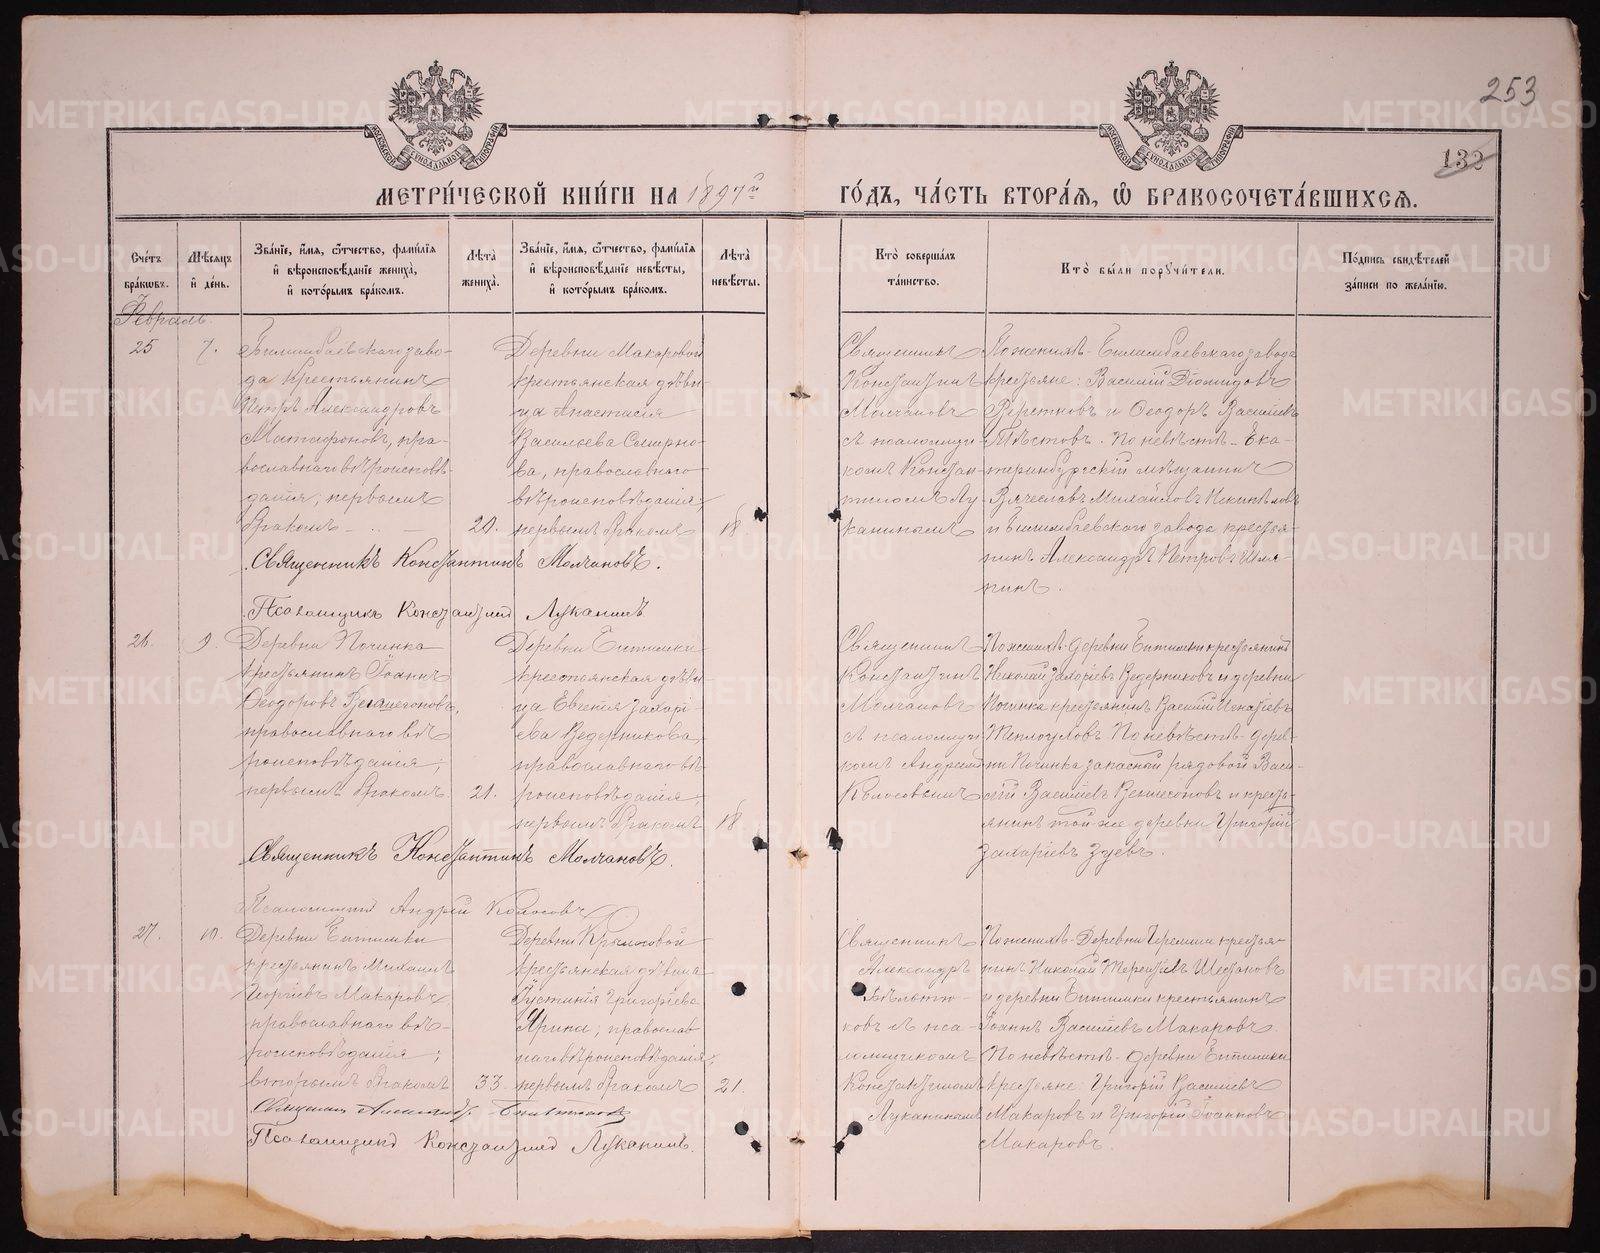 253
132
МЕТРИ́ЧЕСКОЙ КНИ́ГИ НА 1897 г.
ГО́ДЪ, ЧА́СТЬ ВТОРА́Я, Ѡ БРАКОСОЧЕТА́ВШИХСЯ.
Сче́тъ бра́ковъ.
Мѣ́сяцъ и́ де́нь.
Зва́нїе, и́мя, ѻ́тчество, фами́лїя и́ вѣроисповѣ́данїе жениха̀, и́ кото́рымъ бра́комъ.
Лѣ́та жениха̀.
Зва́нїе, и́мя, ѻ́тчество, фами́лїя и́ вѣроисповѣ́данїе невѣ́сты, и́ кото́рымъ бра́комъ.
Лѣ́та невѣ́сты.
Кто̀ соверша́лъ та́инство.
Кто̀ бы́ли пору́чители.
По́дпись свидѣ́телей за́писи по жела́нїю.
Февраль.
25
7.
Билимбаевскаго заво-
да крестьянинъ
Петръ Александровъ
Матафоновъ, пра-
вославнаго вѣроисповѣ-
данія, первымъ
бракомъ
20.
Деревни Макаровой
крестьянская дѣви-
ца Анастасія
Васильева Смирно-
ва, православнаго
вѣроисповѣданія,
первымъ бракомъ
18
Священникъ
Константинъ
Молчановъ
съ псаломщи-
комъ Констан-
тиномъ Лу-
канинымъ
По женихѣ - Билимбаевскаго завода
крестьяне: Василій Діомидовъ
Веретновъ и Ѳеодоръ Васильевъ
Тѣстовъ. По невѣстѣ - Ека-
теринбургскій мѣщанинъ
Вячеславъ Михайловъ
и Билимбаевскаго завода кресть-
нинъ Александръ Петровъ Шля-
пинъ.
Священникъ Константинъ Молчановъ.
Псаломщикъ Константинъ Луканинъ
26.
9.
Деревни Починка
крестьянинъ Іоаннъ
Ѳеодоровъ
православнаго вѣ-
роисповѣданія,
первымъ бракомъ
21.
Деревни Битимки
крестьянская дѣви-
ца Евгенія Захарі-
ева Ведерникова,
православнаго вѣ-
роисповѣданія,
первымъ бракомъ
18
Священникъ
Константинъ
Молчановъ
съ псаломщи-
комъ Андреемъ
Колосовымъ
По женихѣ - деревни Битимки крестьянинъ
Николай Захаріевъ Ведерниковъ и деревни
Починка крестьянинъ Василій Игнатіевъ
Теплоуховъ. По невѣстѣ - дерев-
ни Починка запасный рядовой Васи-
лій Васильевъ и кресть-
янинъ той же деревни Григорій
Захаріевъ Зуевъ.
Священникъ Константинъ Молчановъ.
Псаломщикъ Андрей Колосовъ
27.
10.
Деревни Битимки
крестьянинъ Михаилъ
Георгіевъ Макаровъ
православнаго вѣ-
роисповѣданія;
вторымъ бракомъ
33.
Деревни Крылосовой
крестьянская дѣвица
Іустинія Григоріева
Ярина, православ
наго вѣроисповѣданія,
первымъ бракомъ
21.
Священникъ
Александръ
ковъ съ пса-
ломщикомъ
Константиномъ
Луканинымъ
По женихѣ - Деревни Черемши крестья-
нинъ Николай Терентьевъ Шестаковъ
и деревни Битимки крестьянинъ
Іоаннъ Васильевъ Макаровъ.
По невѣстѣ - деревни Битимки
крестьяне: Григорій Васильевъ
Макаровъ и Григорій Іоанновъ
Макаровъ.
Священникъ Александръ
Псаломщикъ Константинъ Луканинъ.
METRIKI.GASO-URAL.RU